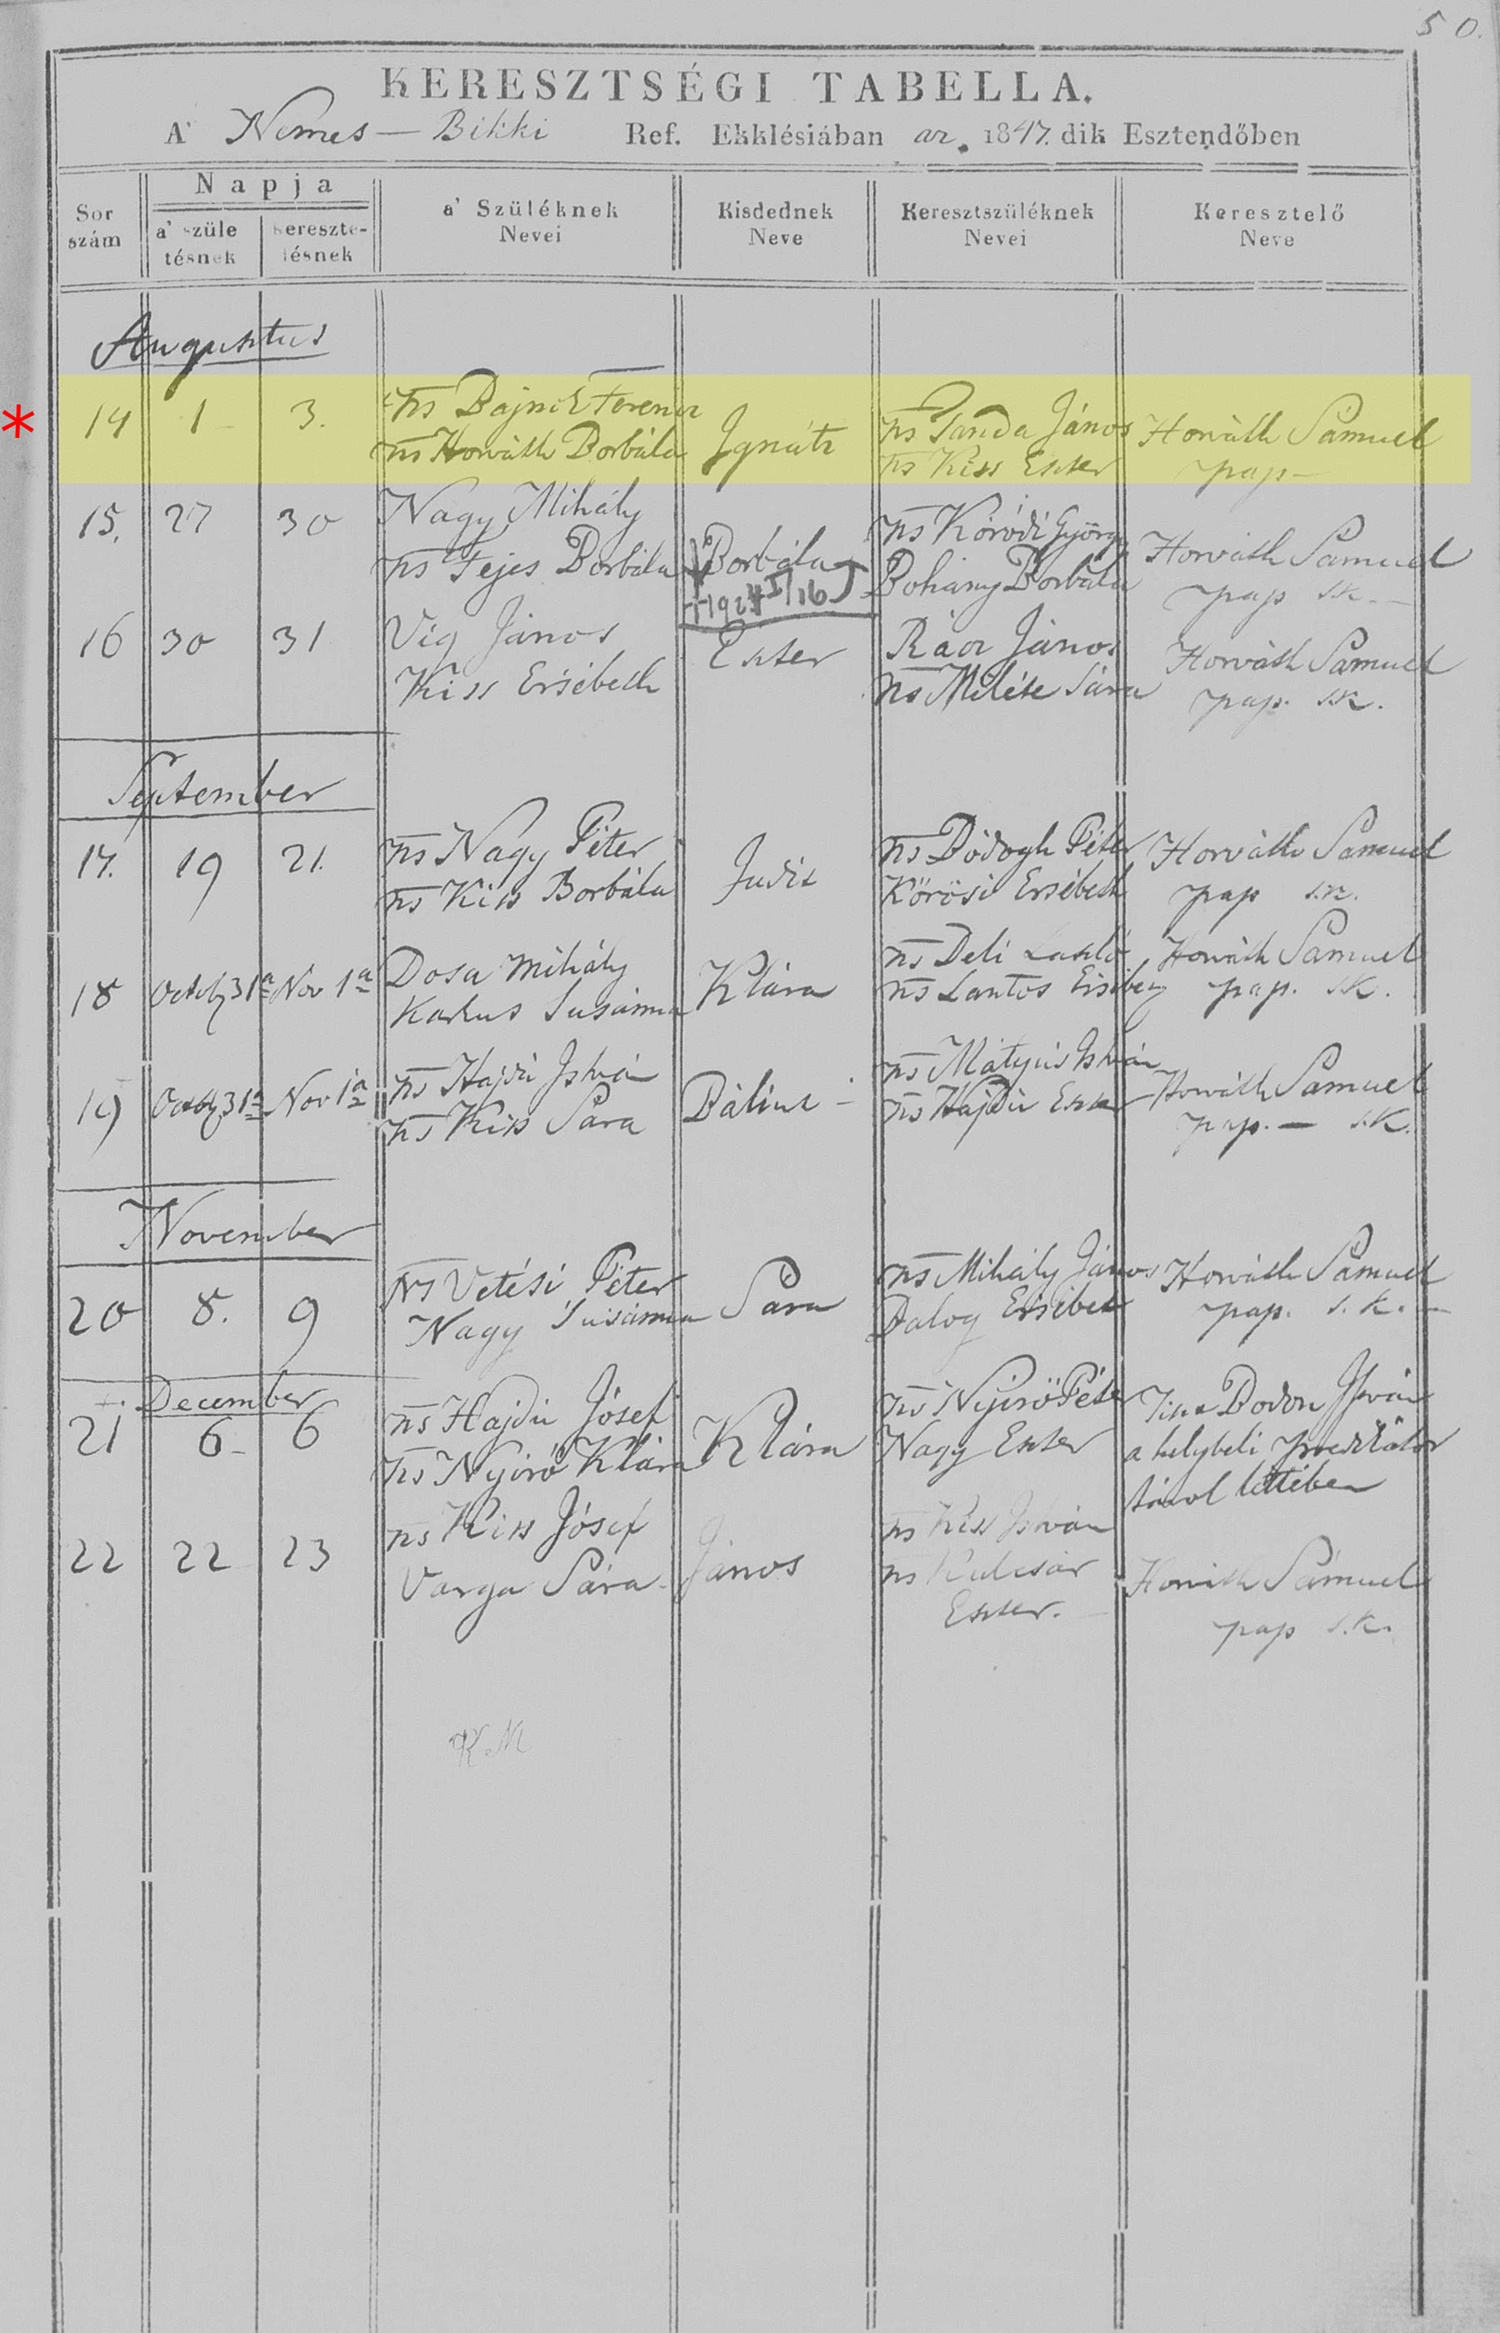 50.
KERESZTSÉGI TABELLA.
A' Nemes - Bikki Ref. Ekklésiában az 1847. dik Esztendőben
Sor szám
Napja
a' szüle tésnek
keresztelésnek
a' Szüléknek Nevei
Kisdednek Neve
Keresztszüléknek Nevei
Keresztelő Neve
Augustus
14 1 3. ns Ferencz ns Horváth Borbála Ignátz ns Panda János ns Kiss Eszter Horváth Sámuel pap
15. 27 30 Nagy Mihály ns Fejes Borbála Borbála †1924 I/16 ns Kóródi György Bohány Borbála Horváth Sámuel pap s.k.
16 30 31 Vig János Kiss Ersébeth Eszter Rácz János ns Sára Horváth Sámuel pap. s.k.
September
17. 19 21. ns Nagy Péter ns Kiss Borbála Judit ns Bódogh Péter Körösi Ersébeth Horváth Sámuel pap s.k.
18 31a Nov 1a Dosa Mihály Susánna Klára ns Deli László ns Lantos Horváth Sámuel pap. s.k.
19 31a Nov 1a ns Hajdú István ns Kiss Sára Bálint ns Mátyus István ns Hajdú Eszter Horváth Sámuel pap. s.k.
November
20 8. 9 ns Vetési Péter Nagy Susánna Sára ns Mihály János Balog Ersébet Horváth Sámuel pap. s.k.
December
21 6 6 ns Hajdú Jósef ns Nyirő Klára Klára ns Nyirő Péter Nagy Eszter Bodon István a helybeli távol létében
22 22 23 ns Kiss Jósef Varga Sára János ns Kiss István ns Kulcsár Eszter. Horváth Sámuel pap s.k.
K.M